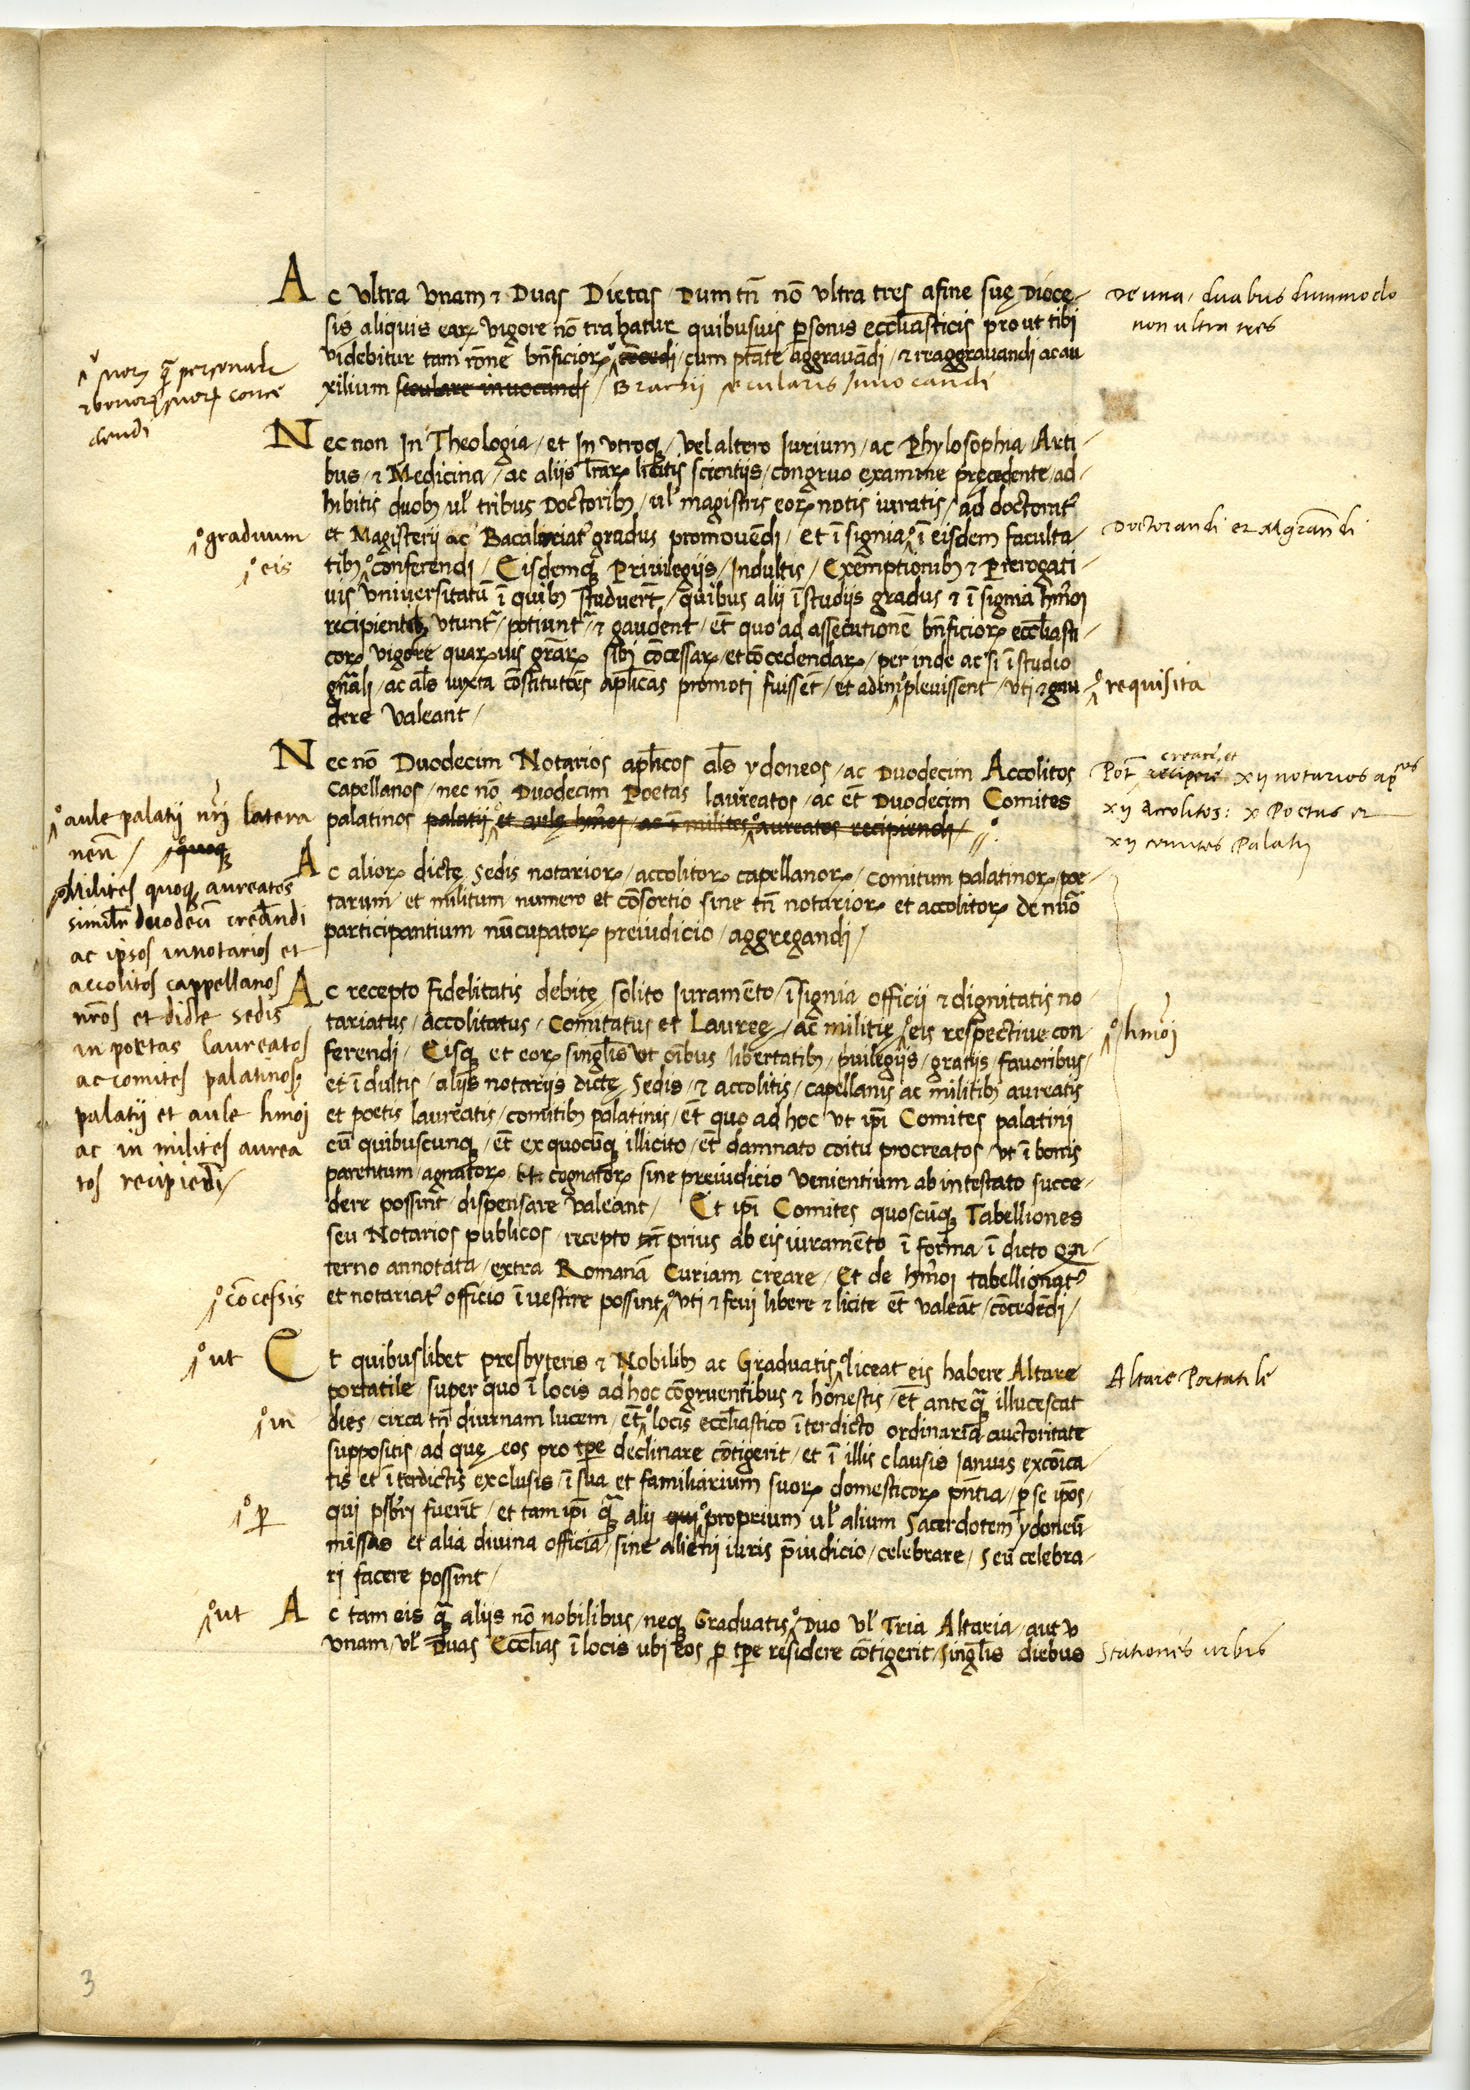 Ac ultra unam & Duas Dietas / Dum tn̄ nō ultra tres afine suę Dioce-
sis aliquis earꝝ vigore nō trahatur quibusuis ꝑsonis eccl̄iasticis prout tibi
videbitur tam rōne bn̄ficiorꝝ concedi / cum ptāte aggrauādi / & reaggrauandi ac au
xilium seculare inuocandi / Brachij secularis Inuocandi
De una / duabus dummodo
non ultra tres
suorꝝ q̄ꝫ personale
& honorꝝ suorꝝ conce
dendi
Nec non In Theologia / et In utroqꝫ / vel altero Iurium / ac Phylosophia / Arti-
bus / & Medicina / ac aliis l̄rarꝝ licitis scientijs / congruo examine pręcedente / ad-
hibitis duobꝫ ul' tribus Doctoribꝫ / ul' magistris eorꝝ notis iuratis / ad doctorat'
et Magisterij ac Bacalariat' gradus promouēdi / et īsignia ī eisdem faculta-
tibꝫ conferendi / Eisdemqꝫ Priuilegijs / Indultis / Exēmptionibꝫ & Prerogati-
uis vniuersitatū ī quibꝫ studuerīt / quibus alij ī studijs gradus & īsignia hm̄oi
recipientes utunt' / potiunt' & gaudent / et̄ quo ad assecutionē bn̄ficiorꝝ eccl̄iasti-
corꝝ vigore quarꝝuis grārꝝ sibi cōcessarꝝ / et cōcedendarꝝ / per inde ac si ī studio
gn̄ali / ac al̄s iuxta cōstitutiōes apl̄icas promoti fuissēt / et adimpleuissent / uti & gau
dere valeant /
graduum
eis
Doctorandi et Mgrān̄di
requisita
Nec nō Duodecim Notarios apl̄icos al̄s ydoneos / ac Duodecim Accolitos
Capellanos / nec nō Duodecim Poetas laureatos / ac et̄ Duodecim Comites
palatinos palatij et aulę hm̄oi / ac ī milites aureatos recipiendi /
Pot̄ recipere creare et xij notarios ap̄cos
xij Accolitos: x Poetas et
xij comites Palatij
aule palatij nr̄i latera
nen̄ / quoqꝫ
Milites quoqꝫ aureatos
similr̄ duodecī creandi
ac ipsos in notarios et
accolitos cappellanos
nr̄os et dicte sedis
in poetas laureatos
ac comites palatinos
palatij et aule hm̄oi
ac in milites aurea
tos recipiēdi /
Ac aliorꝝ dictę sedis notariorꝝ / accolitorꝝ capellanorꝝ / comitum palatinorꝝ / poe-
tarum / et militum numero et cōsortio sine tn̄ notariorꝝ et accolitorꝝ de nūo
participantium nūcupatorꝝ preiudicio / aggregandi /
Ac recepto fidelitatis debitę solito Iuramēto / īsignia officij & dignitatis no-
tariatus / accolitatus / Comitatus et Laureę / ac militię / eis respectiue con-
ferendi / Eisqꝫ et eorꝝ singl̄is ut oībus libertatibꝫ / priuilegijs / gratijs / fauoribus /
et īdultis / alijs notarijs dictę Sedis / & accolitis / capellanis ac militibꝫ aureatis
et poetis laureatis / comitibꝫ palatinis / et̄ quo ad hoc ut ip̄i Comites palatini
cū quibuscunqꝫ / et̄ ex quocūqꝫ illicito / et̄ damnato coitu procreatos / ut ī bonis
parentum / agnatorꝝ et cognatorꝝ sine preiudicio venientium ab intestato succe-
dere possint / dispensare valeant / Et ip̄i Comites quoscūqꝫ Tabelliones
seu Notarios publicos / recepto tn̄ prius ab eis iuramēto ī forma / ī dicto qn-
terno annotata / extra Romanā Curiam creare / Et de hm̄oi tabellionat'
et notariat' officio īuestire possint / uti & frui libere & licite et̄ valeāt / cōcedēdi /
hm̄oi
cōcessis
Et quibuslibet presbyteris & Nobilibꝫ ac Graduatis / liceat eis habere Altare
portatile / super quo ī locis ad hoc cōgruentibus & honestis / et̄ anteqꝫ illucescat
dies / circa tn̄ diurnam lucem / et̄ locis eccl̄iastico īterdicto ordinaria auctoritate
suppositis / ad quę eos pro tp̄e declinare cōtigerit / et ī illis clausis Ianuis excōica-
tis et īterdictis exclusis / ī sua et familiarium suorꝝ domesticorꝝ pn̄tia / ꝑ se ip̄os /
qui psbr̄i fuerīt / et tam ip̄i q̄ꝫ alij qui proprium ul' alium Sacerdotem ydoneū
missas et alia diuina officia / sine alieni iuris p̄iudicio / celebrare / seu celebra-
ri facere possint /
ut
in
ꝑ
Altare Portatile
Ac tam eis q̄ꝫ alijs nō nobilibus / neqꝫ Graduatis / Duo ul' Tria Altaria / aut v
vnam / ul' Duas Eccl̄ias ī locis ubi eos ꝓ tp̄e residere cōtigerit / singl̄is diebus
ut
Stationes urbis
3